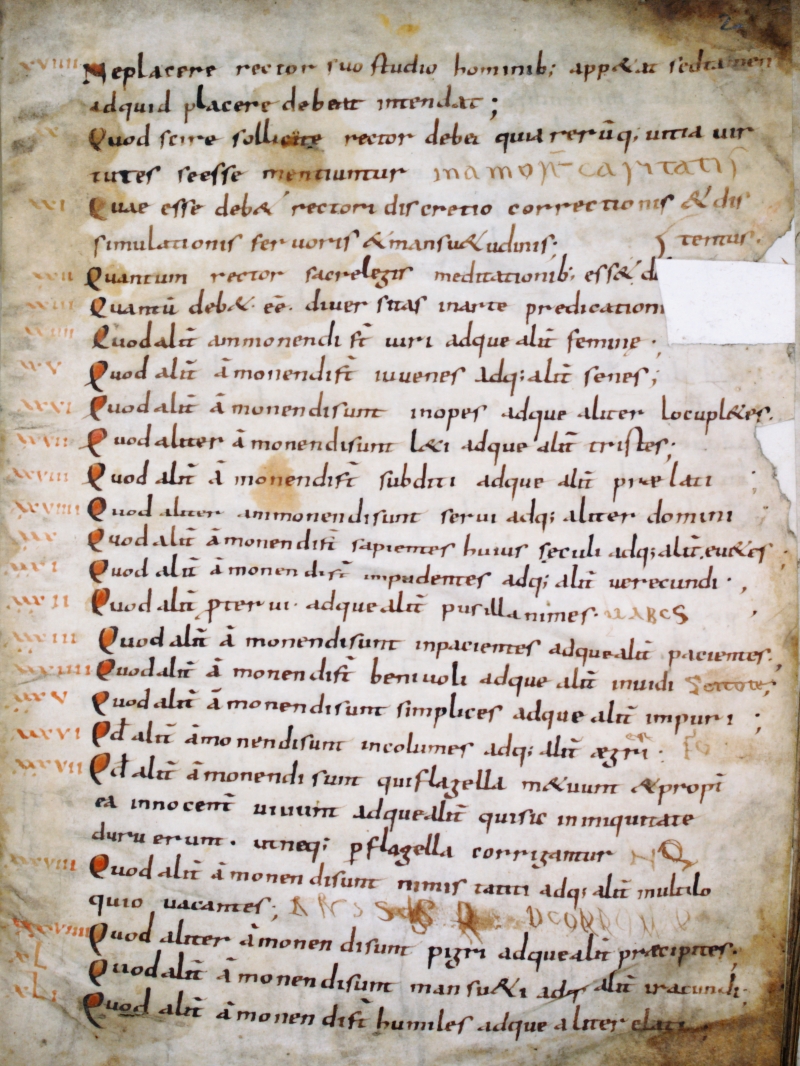 xviiii Ne placere rector suo studio hominib; app&at sed tamen
ad quid placere debeat intendat;
xx Quod scire sollicite rector deb& quia rerūq, uitia uir
tutes se esse mentiuntur in amorē caritatis
xxi Quae esse deb& rectori discretio correctionis & dis
simulationis feruoris & mansu&udinis;
xxii Quantum rector sacre legis meditationib; ess& de
xxiii Quantū deb& eē diuersitas in arte predication
xxiiii Quod alit̄ ammonendi st̄ uiri adque alit̄ femine.
xxv Quod alit̄ āmonendi st̄ iuuenes adq; alit̄ senes;
xxvi Quod alit̄ āmonendi sunt inopes adque aliter locupl&es.
xxvii Quod aliter āmonendi sunt l&i adque alit̄ tristes;
xxviii Quod alit̄ āmonendi st̄ subditi adque alit̄ prælati ;
xxviiii Quod aliter ammonendi sunt serui adq; aliter domini
xxx Quod alit̄ āmonendi st̄ sapientes huius seculi adq; alit̄ eu&es;
xxxi Quod alit̄ āmonendi st̄ inpudentes adq; alit̄ uerecundi.,
xxxii Quod alit̄ pterui adque alit̄ pusillanimes.
xxxiii Quod alit̄ āmonendi sunt inpacientes adque alit̄ pacientes.
xxxiiii Quod alit̄ āmonendi st̄ beniuoli adque alit̄ inuidi
xxxv Quod alit̄ āmonendi sunt simplices adque alit̄ impuri;
xxxvi Qđ alit̄ āmonendi sunt incolumes adq; alit̄ ægri.
xxxvii Qđ alit̄ āmonendi sunt qui flagella m&uunt & propt̄
ea innocent̄ uiuunt adque alit̄ qui sic in iniquitate
duruerunt. ut neq; p flagella corrigantur
xxxviii Quod alit̄ āmonendi sunt nimis taciti adq; alit̄ multilo
quio uacantes;
xxxviiii Quod aliter āmonendi sunt pigri adque alit̄ præcipites.
xL Quod alit̄ āmonendi sunt mansu&i adq; alit̄ iracundi.
xLi Quod alit̄ āmonendi st̄ humiles adque aliter elati